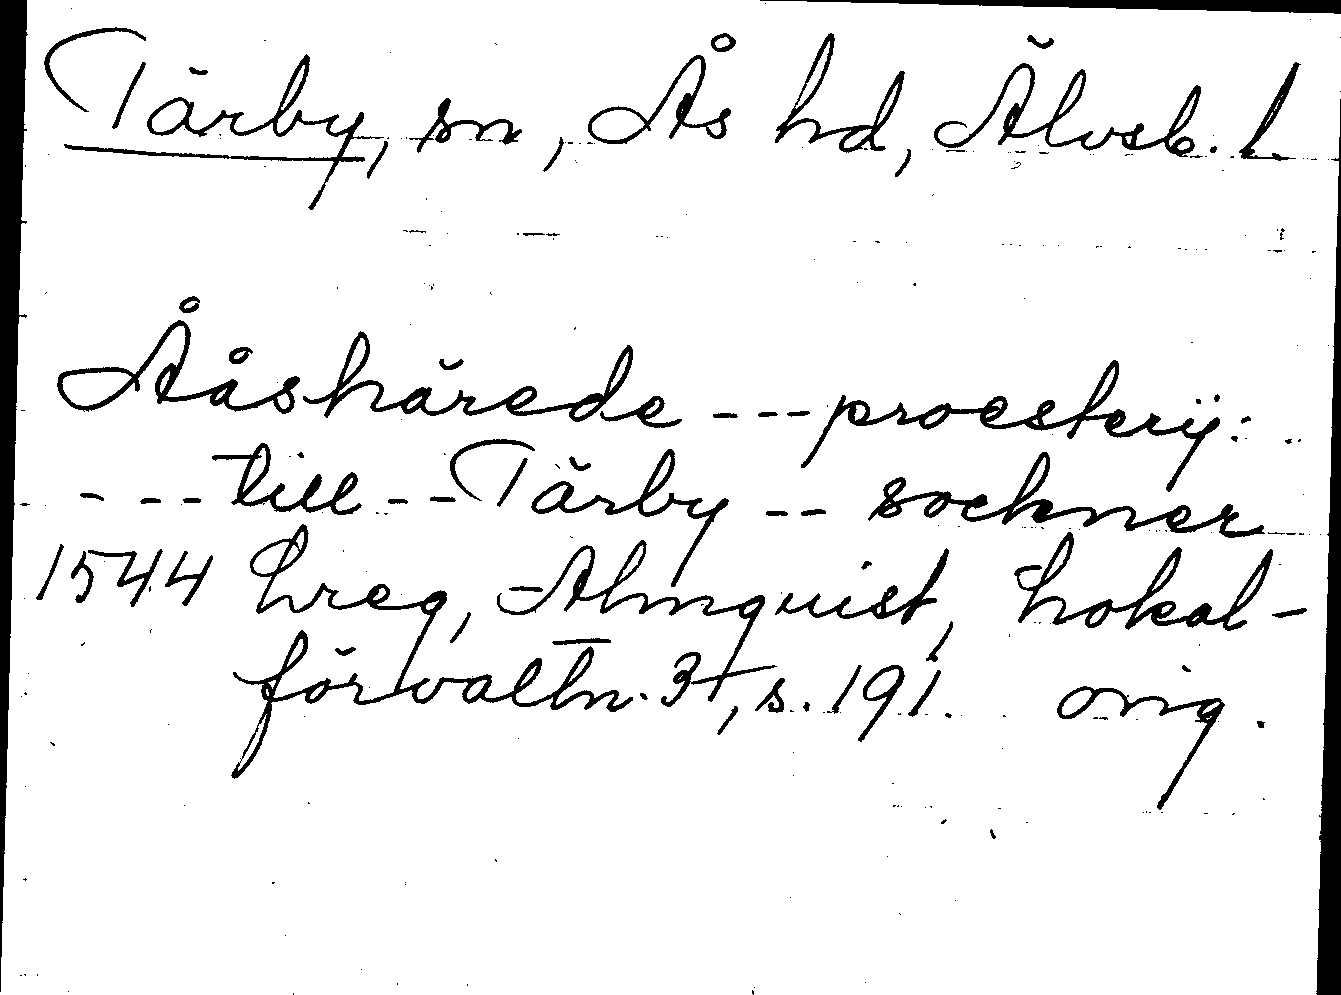 Tärby, sn, Ås hd, Älvsb. l.
Ååshärede --- proesterij:
--- till -- Tärby -- sockner
1544 Lreg, Almquist, Lokal-
förvaltn. 3, s. 191. orig.